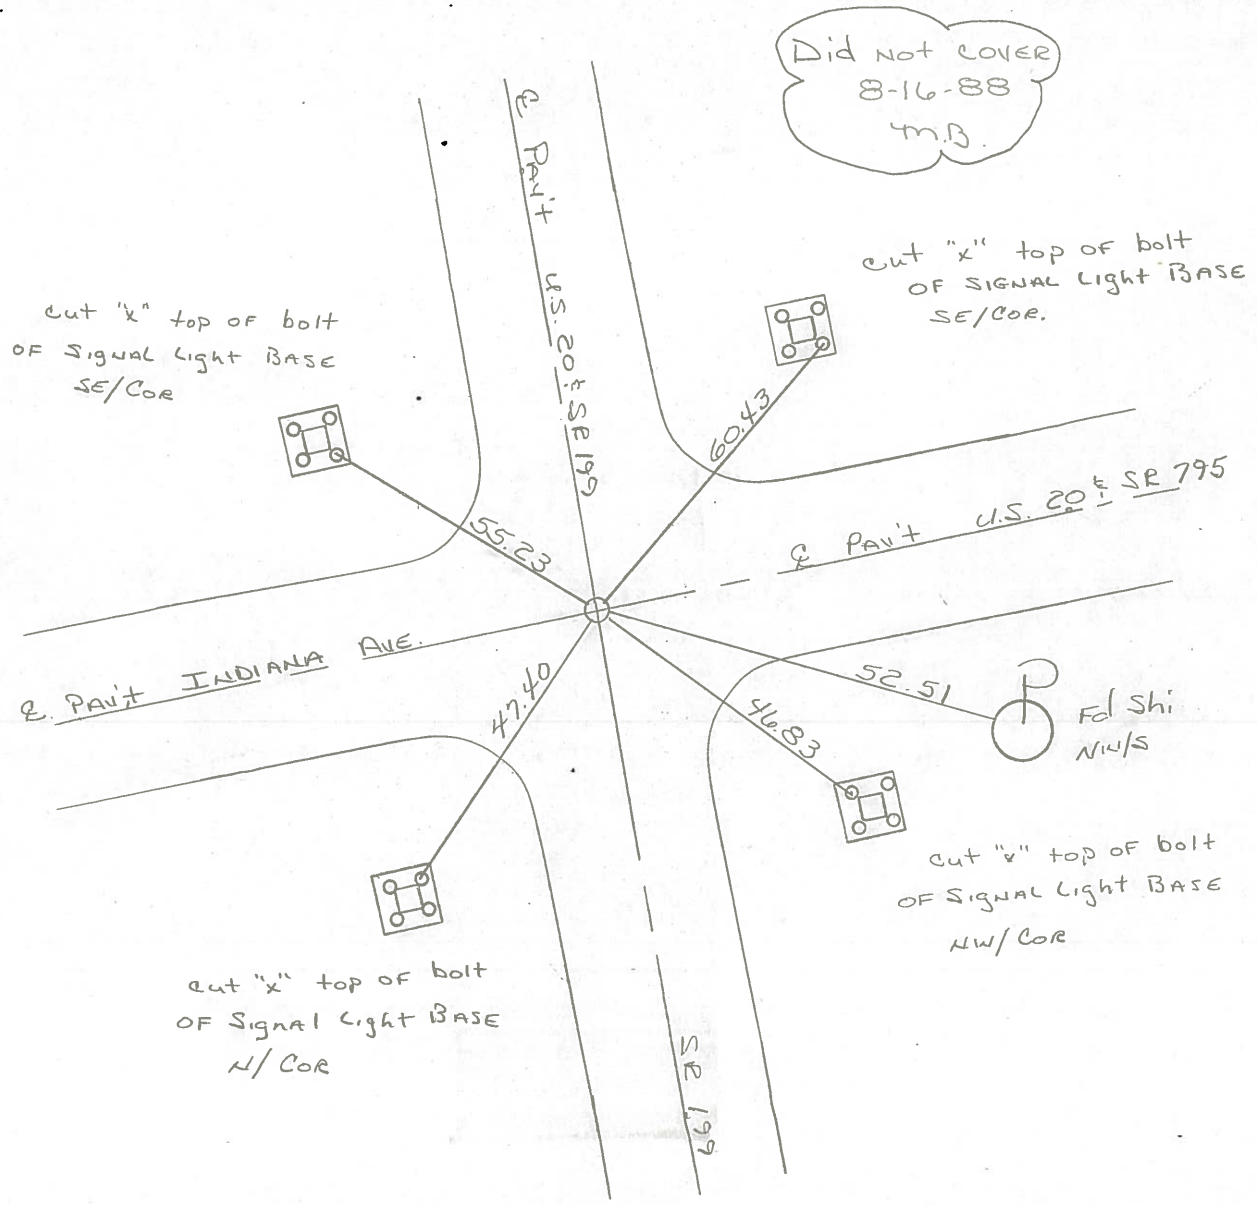 Did NOT COVER
8-16-88
M.B.
℄ PAV't U.S. 20 & SR 199
cut "x" top OF bolt
OF SIGNAL Light BASE
SE/COR.
cut "x" top OF bolt
OF SIGNAL Light BASE
SE/COR
60.43
55.23
℄ PAV't U.S. 20 & SR 795
℄ PAV't INDIANA AVE.
47.40
52.51
46.83
Fd Shi
NW/S
cut "x" top OF bolt
OF SIGNAL Light BASE
NW/COR
cut "x" top OF bolt
OF SIGNAL Light BASE
N/COR
SR 199